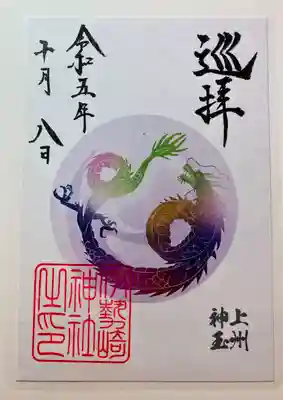 巡拝
上州
神玉
令和五年
十月 八日
伊勢崎
神社
之印